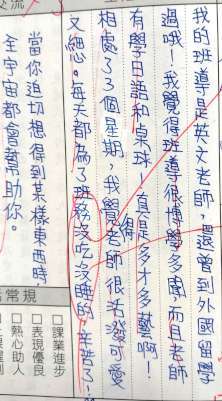 我的班導是英文老師，還曾到外國留學
過哦！我覺得班導很博學多聞，而且老師
有學日語和桌球，真是多才多藝啊！
相處了3個星期，我覺得老師很活潑可愛
又細心。每天都為了班務沒吃沒睡的，辛苦
當你迫切想得到某樣東西時
全宇宙都會幫助你。
常規
□課業進步
□表現優良
□熱心助人